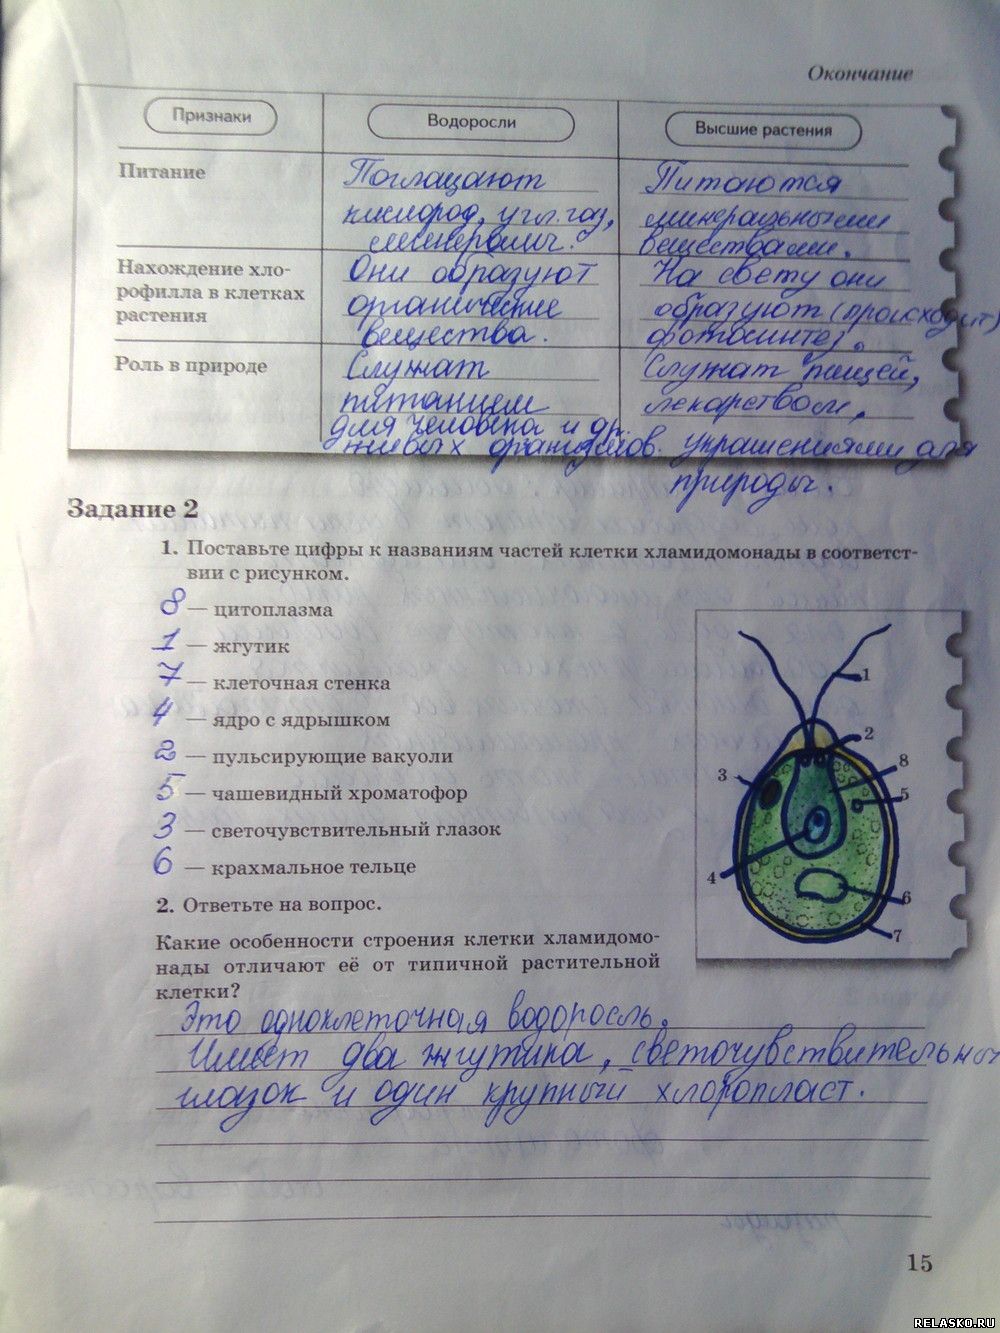 Окончание
Признаки
Водоросли
Высшие растения
Питание
Поглащают
кислород, угл. газ,
минералы.
Питаются
минеральными
веществами.
Нахождение хло-
рофилла в клетках
растения
Они образуют
органические
вещества.
На свету они
образуют (происходит)
фотосинтез.
Роль в природе
Служат
питанием
для человека и др.
живых организмов.
Служат пищей,
лекарством,
украшениями для
природы.
Задание 2
1. Поставьте цифры к названиям частей клетки хламидомонады в соответст-
вии с рисунком.
8 — цитоплазма
1 — жгутик
7 — клеточная стенка
4 — ядро с ядрышком
2 — пульсирующие вакуоли
5 — чашевидный хроматофор
3 — светочувствительный глазок
6 — крахмальное тельце
1
2
3
8
5
4
6
7
2. Ответьте на вопрос.
Какие особенности строения клетки хламидомо-
нады отличают её от типичной растительной
клетки?
Это одноклеточная водоросль.
Имеет два жгутика, светочувствительный
глазок и один крупный хлоропласт.
15
RELASKO.RU